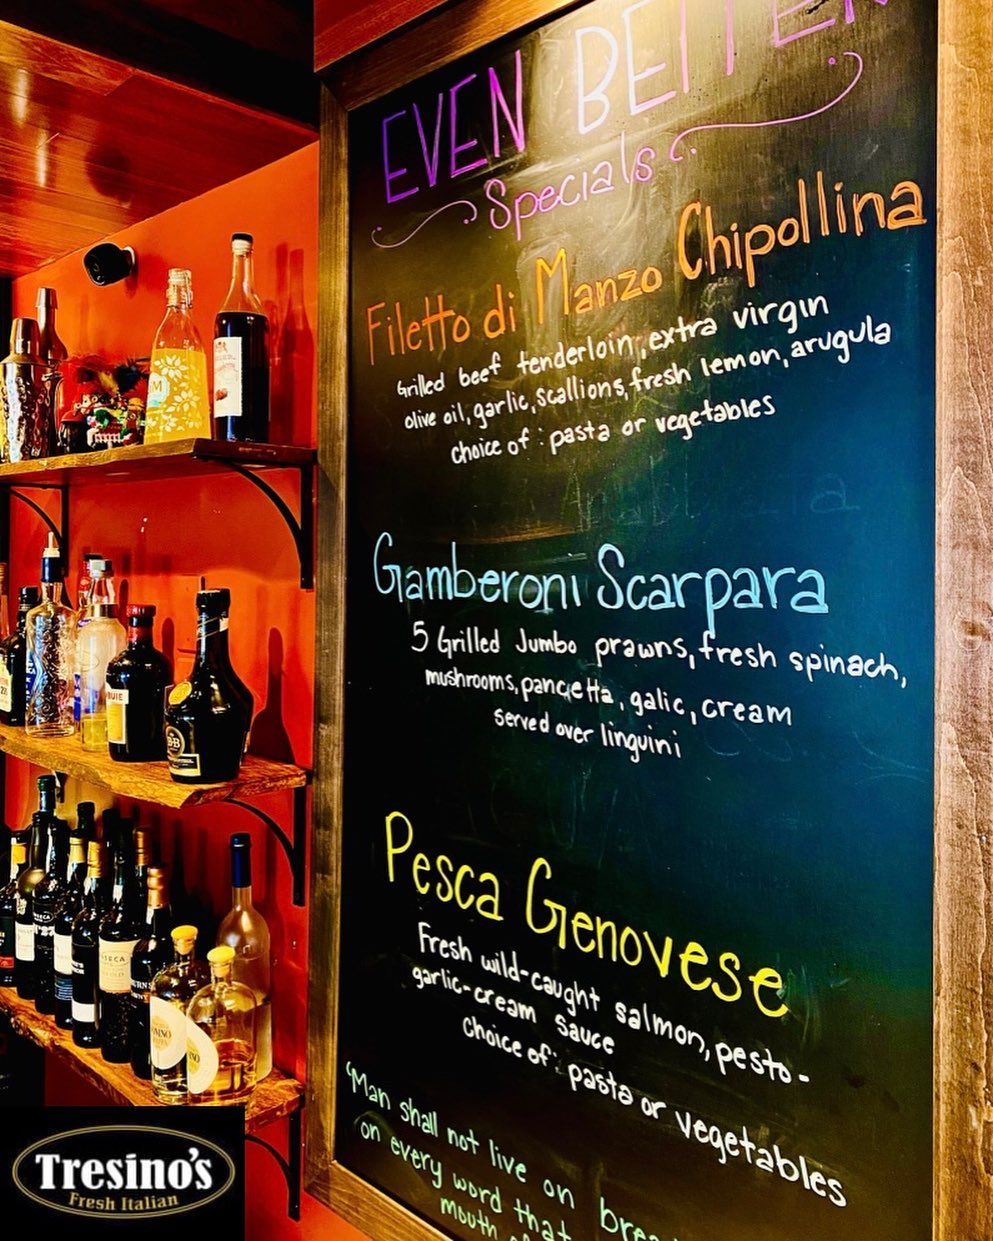 EVEN BETTER
Specials
Filetto di Manzo Chipollina
Grilled beef tenderloin, extra virgin
olive oil, garlic, scallions, fresh lemon, arugula
choice of: pasta or vegetables
Gamberoni Scarpara
5 Grilled Jumbo prawns, fresh spinach,
mushrooms, pancietta, galic, cream
served over linguini
Pesca Genovese
Fresh wild-caught salmon, pesto-
garlic-cream sauce
Choice of: pasta or vegetables
"Man shall not live on
on every word that
mouth
Tresino's
Fresh Italian